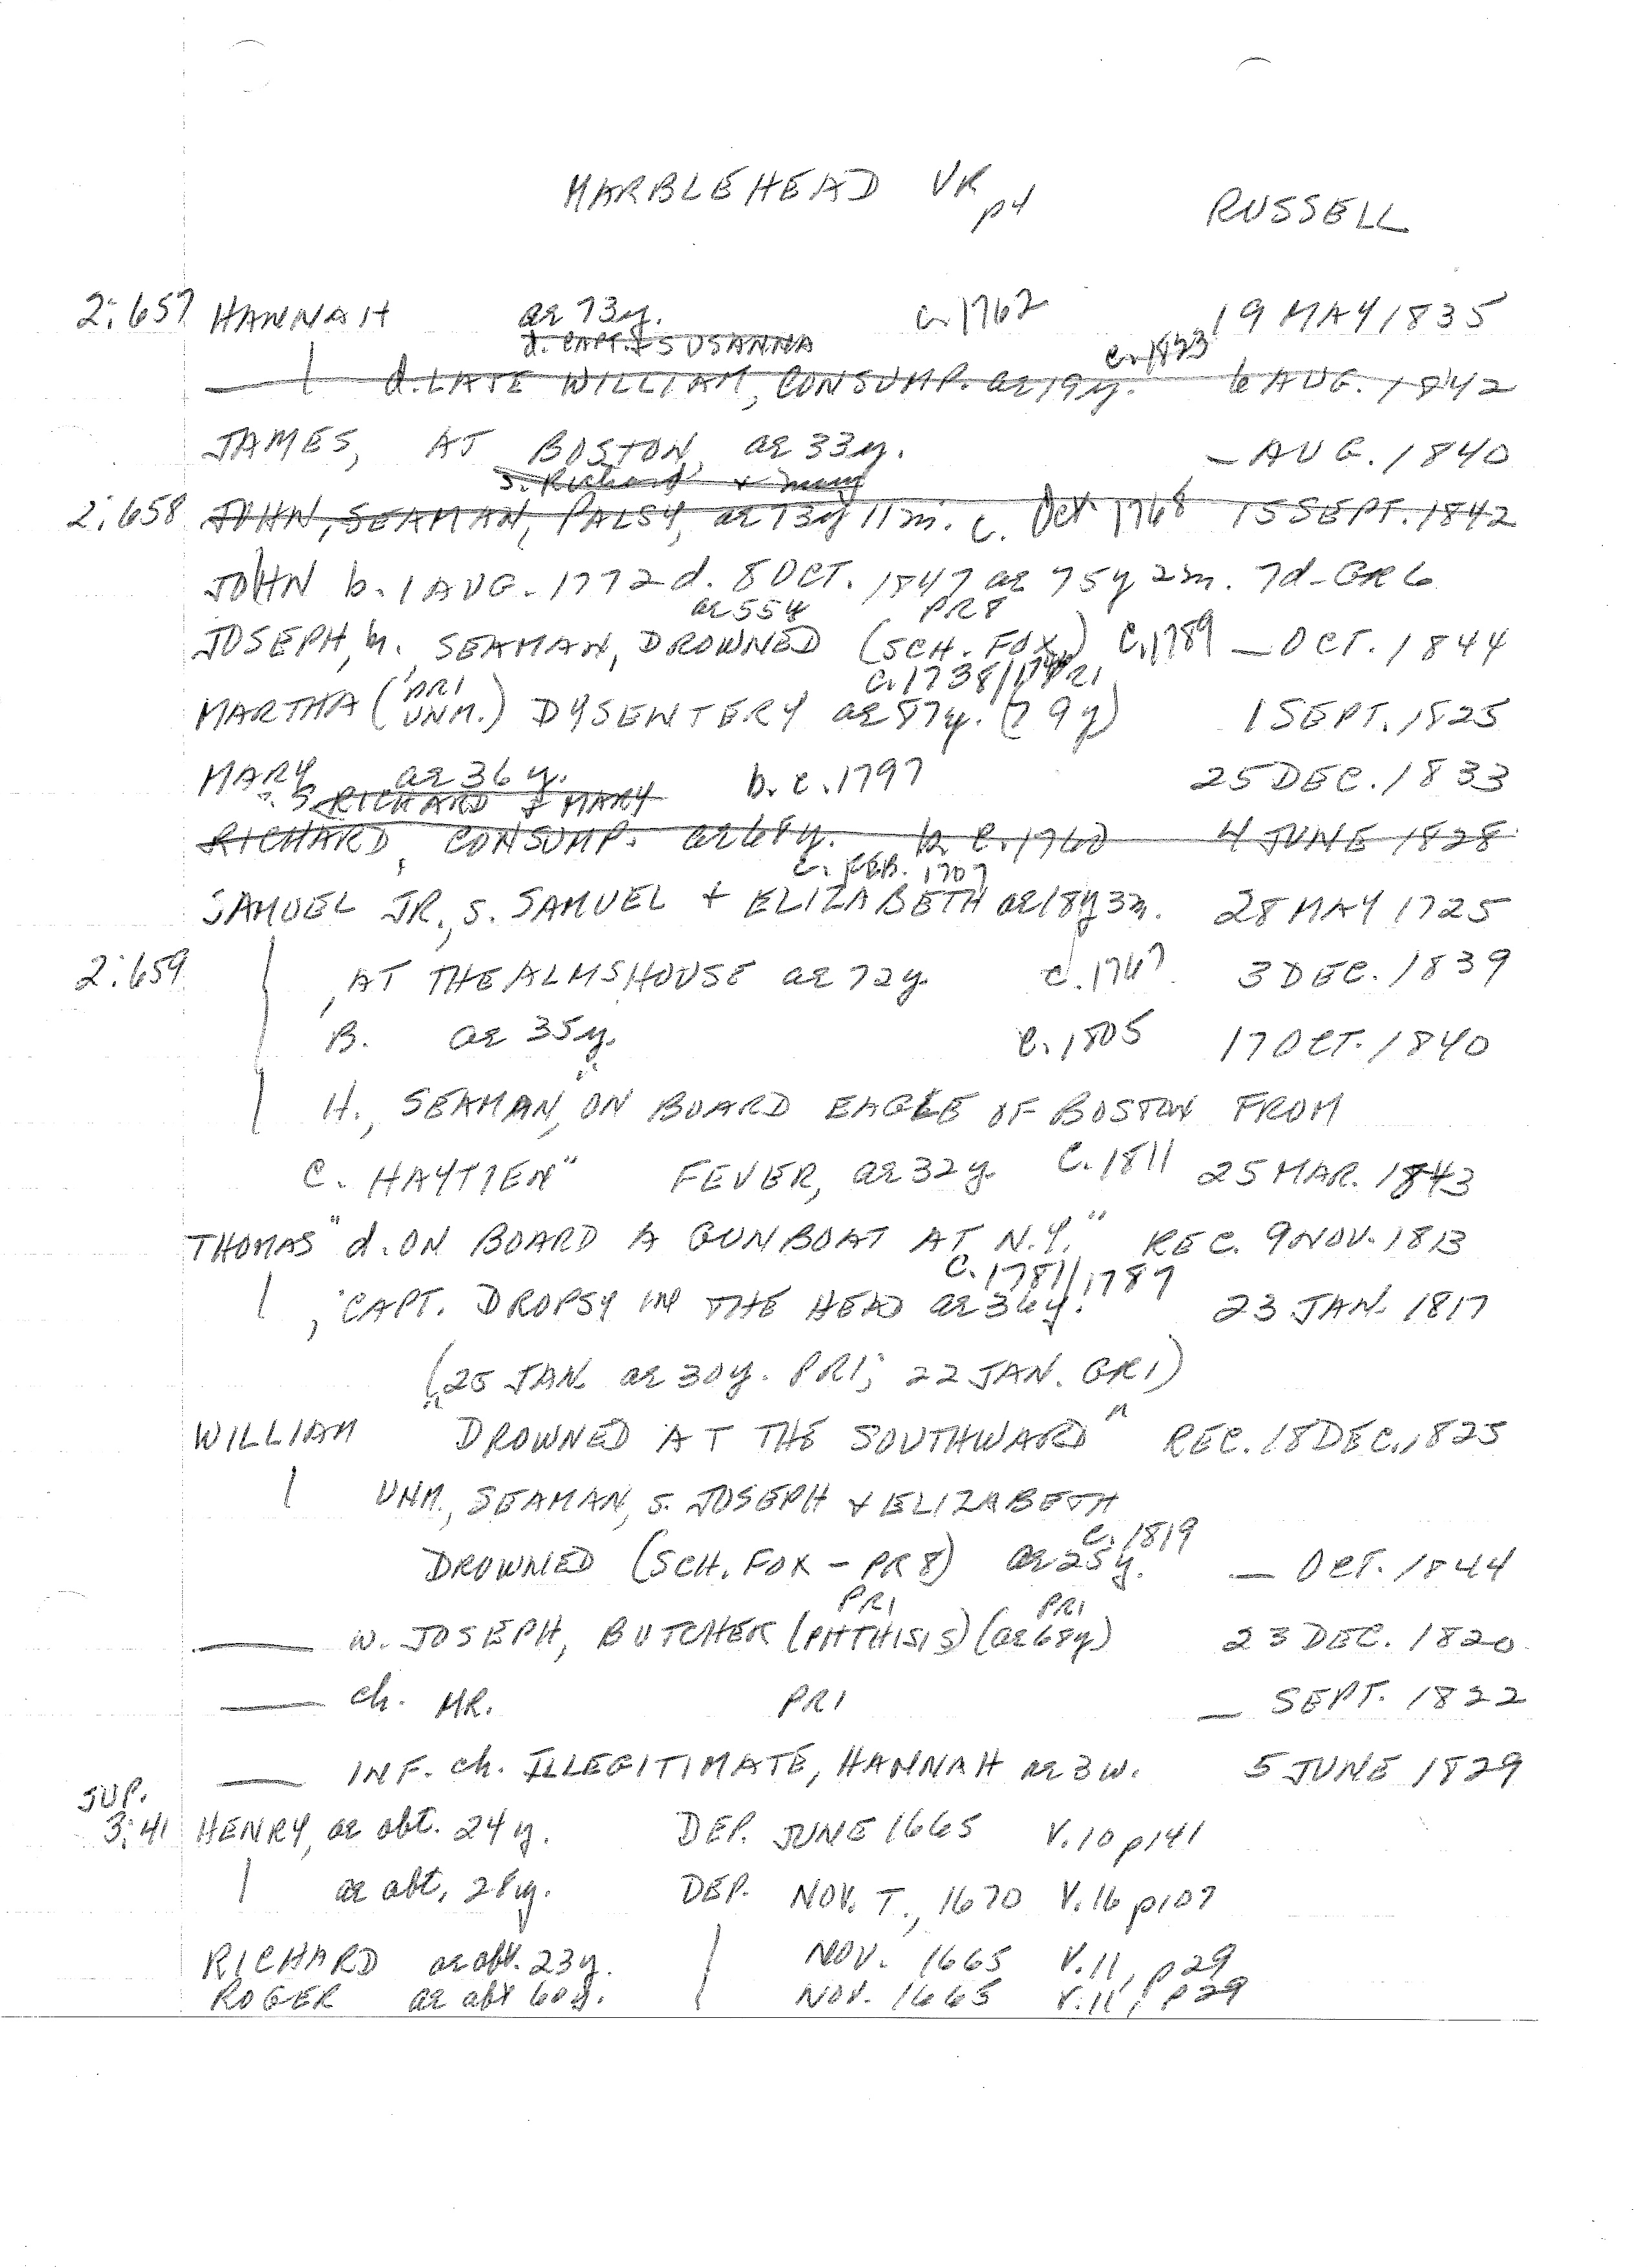 MARBLEHEAD VR p4 RUSSELL
2:657 HANNAH ae 73y. c. 1762 19 MAY 1835
d. CAPT. + SUSANNA
— d. LATE WILLIAM, CONSUMP. ae 19y. c. 1823 6 AUG. 1842
JAMES, AT BOSTON, ae 33y. — AUG. 1840
s. Richard + Mary
2:658 JOHN, SEAMAN, PALSY, ae 73y 11m. c. Oct 1768 15 SEPT. 1842
JOHN b. 1 AUG. 1772 d. 8 OCT. 1847 ae 75y 2m. 7d - GR6
ae 55y PR8
JOSEPH, m., SEAMAN, DROWNED (SCH. FOX) c. 1789 — OCT. 1844
PR1 c. 1738/1746 PR1
MARTHA (UNM.) DYSENTERY ae 87y. (79y) 1 SEPT. 1825
MARY ae 36y. b. c. 1797 25 DEC. 1833
s. RICHARD + MARY
RICHARD, CONSUMP. ae 68y. b. c. 1760 4 JUNE 1828
c. FEB. 1707
SAMUEL JR., s. SAMUEL + ELIZABETH ae 18y 3m. 28 MAY 1725
2:659 , AT THE ALMSHOUSE ae 72y. c. 1767 3 DEC. 1839
B. ae 35y. c. 1805 17 OCT. 1840
H., SEAMAN, "ON BOARD EAGLE OF BOSTON FROM
C. HAYTIEN" FEVER, ae 32y. c. 1811 25 MAR. 1843
THOMAS "d. ON BOARD A GUNBOAT AT N.Y." REC. 9 NOV. 1813
c. 1781/1787
, CAPT. DROPSY IN THE HEAD ae 36y. 23 JAN. 1817
(25 JAN. ae 30y. PR1; 22 JAN. GR1)
WILLIAM "DROWNED AT THE SOUTHWARD" REC. 18 DEC., 1825
UNM., SEAMAN, s. JOSEPH + ELIZABETH
DROWNED (SCH. FOX - PR8) ae 25y. c. 1819 — OCT. 1844
PR1 PR1
— w. JOSEPH, BUTCHER (PHTHISIS) (ae 68y) 23 DEC. 1820
— ch. MR. PR1 — SEPT. 1822
— INF. ch. ILLEGITIMATE, HANNAH ae 3w. 5 JUNE 1829
SUP.
3:41 HENRY, ae abt. 24y. DEP. JUNE 1665 V.10 p141
ae abt. 28y. DEP. NOV. T., 1670 V.16 p107
RICHARD ae abt. 23y. NOV. 1665 V.11, p29
ROGER ae abt 60y. NOV. 1665 V.11, p29